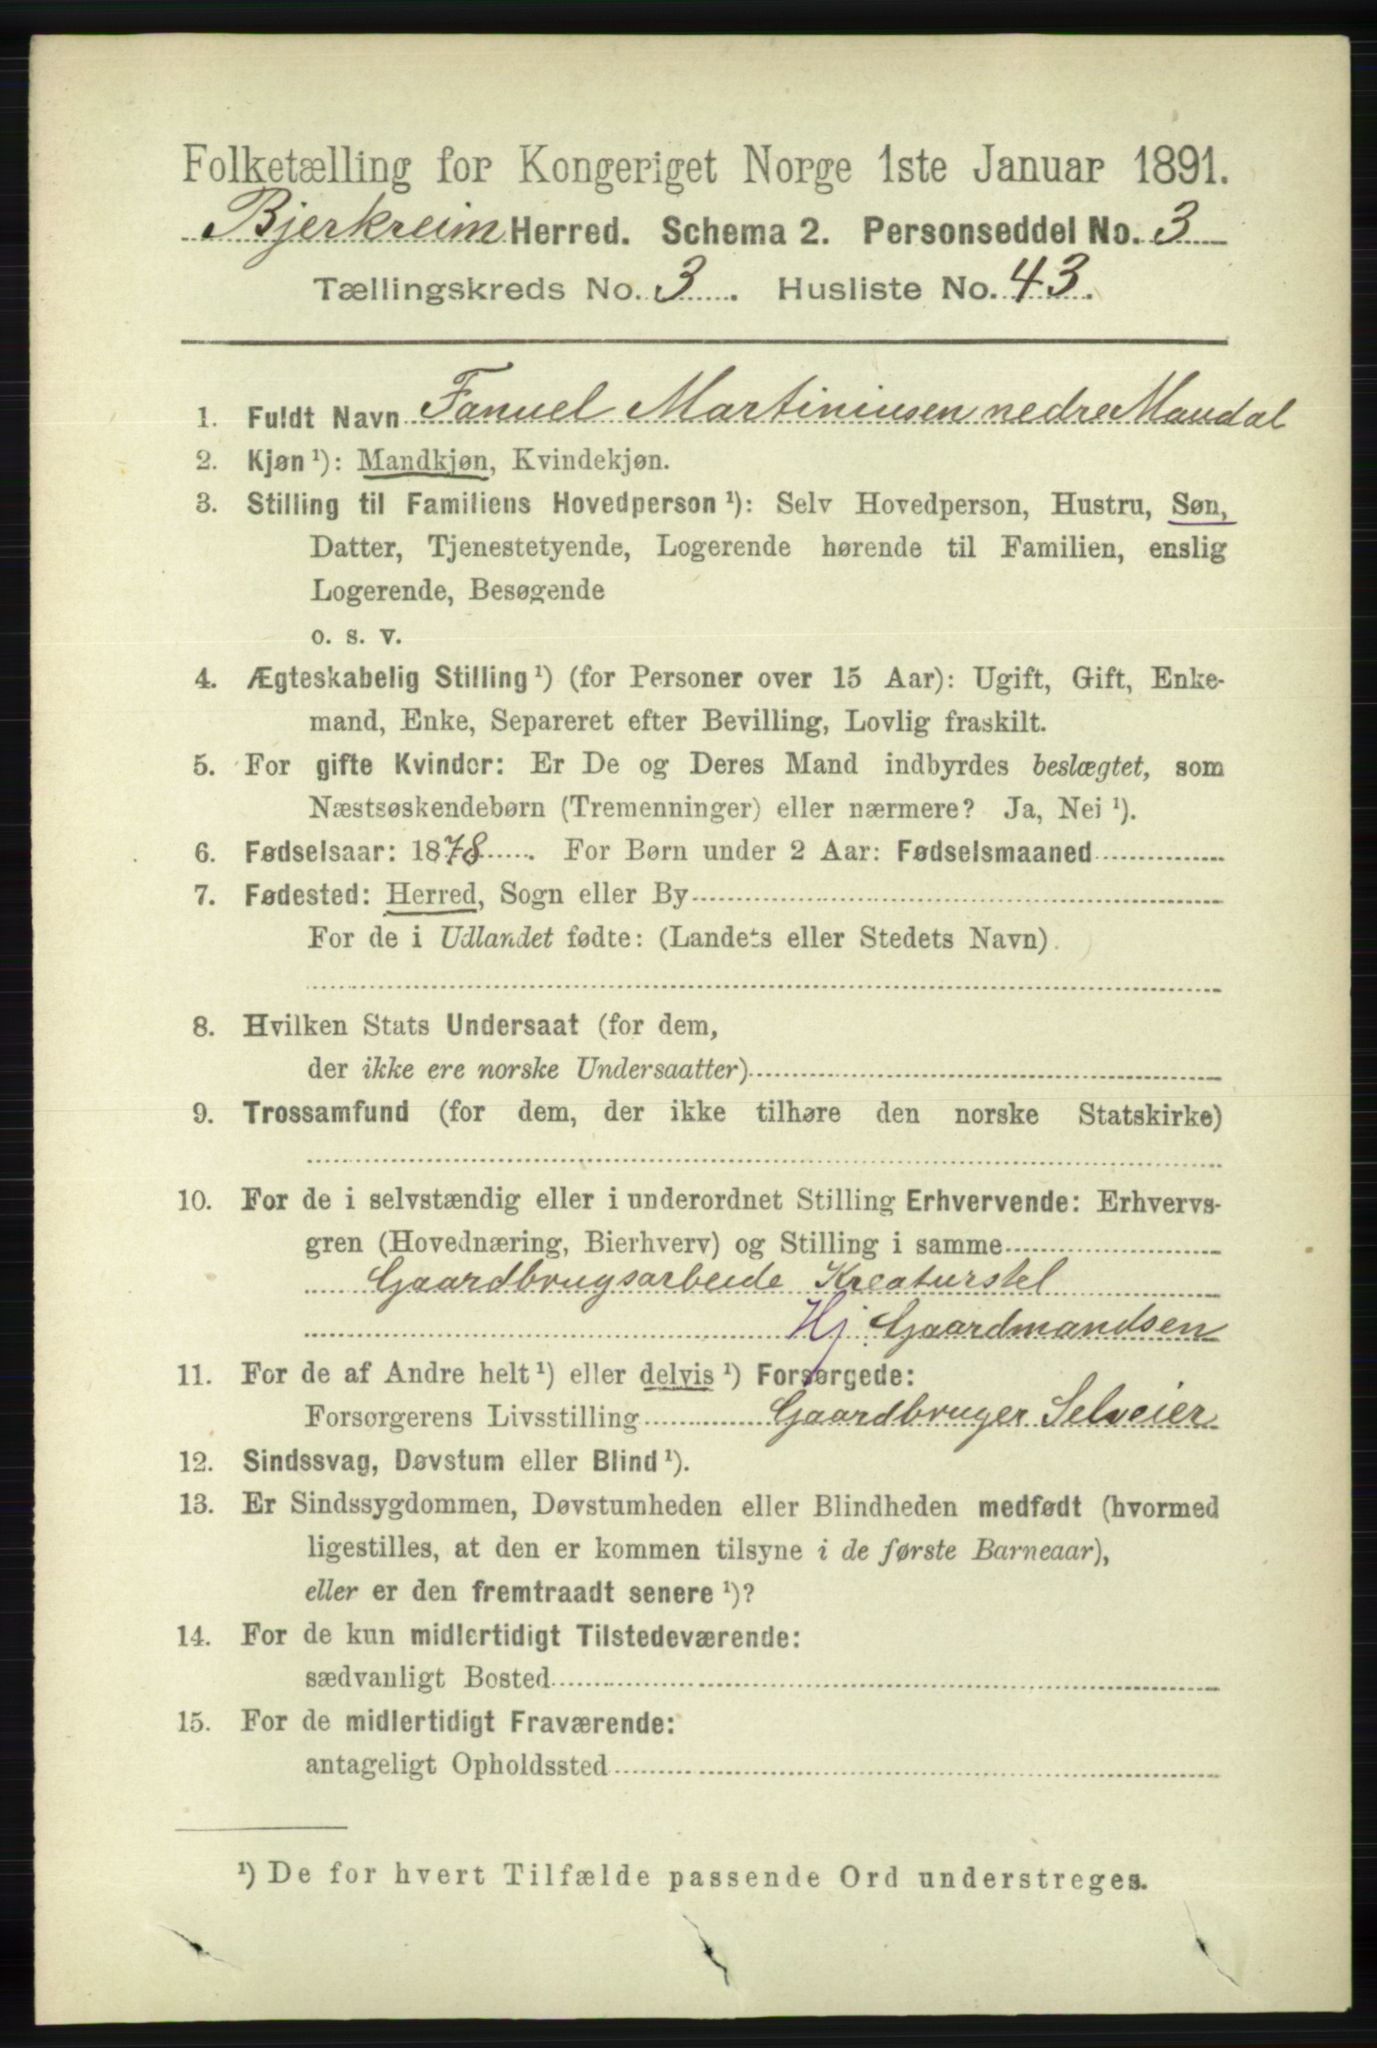 Folketælling for Kongeriget Norge 1ste Januar 1891.
Bjerkreim Herred. Schema 2. Personseddel No. 3
Tællingskreds No. 3. Husliste No. 43.
1. Fuldt Navn Fanuel Martiniusen nedre Maudal
2. Kjøn ¹): Mandkjøn, Kvindekjøn.
3. Stilling til Familiens Hovedperson ¹): Selv Hovedperson, Hustru, Søn,
Datter, Tjenestetyende, Logerende hørende til Familien, enslig
Logerende, Besøgende
o. s. v.
4. Ægteskabelig Stilling ¹) (for Personer over 15 Aar): Ugift, Gift, Enke-
mand, Enke, Separeret efter Bevilling, Lovlig fraskilt.
5. For gifte Kvinder: Er De og Deres Mand indbyrdes beslægtet, som
Næstsøskendebørn (Tremenninger) eller nærmere? Ja, Nei ¹).
6. Fødselsaar: 1878. For Børn under 2 Aar: Fødselsmaaned
7. Fødested: Herred, Sogn eller By
For de i Udlandet fødte: (Landets eller Stedets Navn)
8. Hvilken Stats Undersaat (for dem,
der ikke ere norske Undersaatter)
9. Trossamfund (for dem, der ikke tilhøre den norske Statskirke)
10. For de i selvstændig eller i underordnet Stilling Erhvervende: Erhvervs-
gren (Hovednæring, Bierhverv) og Stilling i samme
Gaardbrugsarbeide Kreaturstel
Hj. Gaardmandsen
11. For de af Andre helt ¹) eller delvis ¹) Forsørgede:
Forsørgerens Livsstilling Gaardbruger Selveier
12. Sindssvag, Døvstum eller Blind ¹).
13. Er Sindssygdommen, Døvstumheden eller Blindheden medfødt (hvormed
ligestilles, at den er kommen tilsyne i de første Barneaar),
eller er den fremtraadt senere ¹)?
14. For de kun midlertidigt Tilstedeværende:
sædvanligt Bosted
15. For de midlertidigt Fraværende:
antageligt Opholdssted
¹) De for hvert Tilfælde passende Ord understreges.